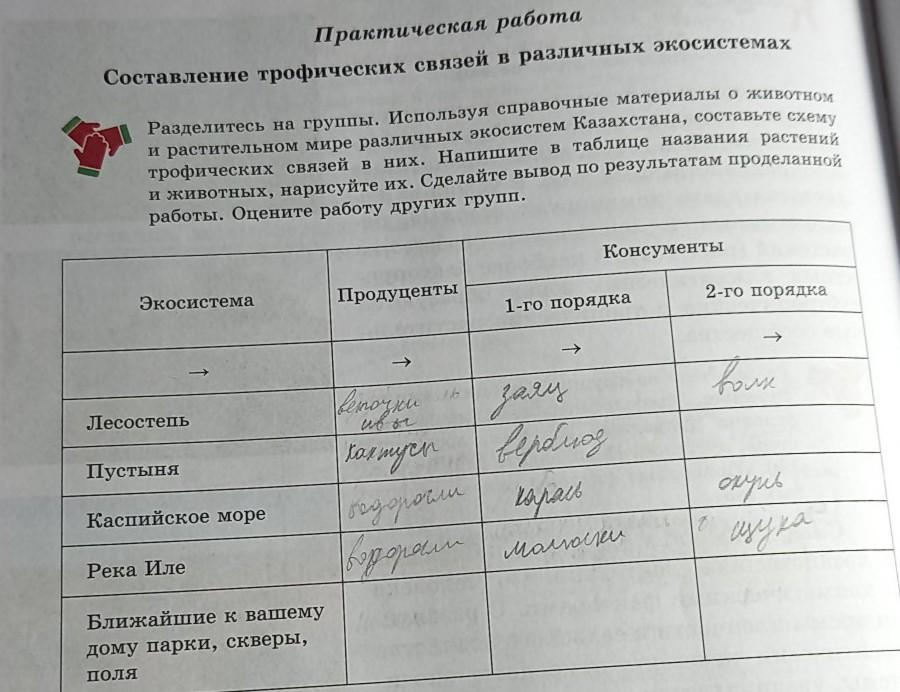 Практическая работа
Составление трофических связей в различных экосистемах
Разделитесь на группы. Используя справочные материалы о животном
и растительном мире различных экосистем Казахстана, составьте схему
трофических связей в них. Напишите в таблице названия растений
и животных, нарисуйте их. Сделайте вывод по результатам проделанной
работы. Оцените работу других групп.
Экосистема
Продуценты
Консументы
1-го порядка
2-го порядка
→ → → →
Лесостепь веточки ивы заяц волк
Пустыня кактусы верблюд
Каспийское море водоросли карась окунь
Река Иле водоросли моллюски щука
Ближайшие к вашему
дому парки, скверы,
поля